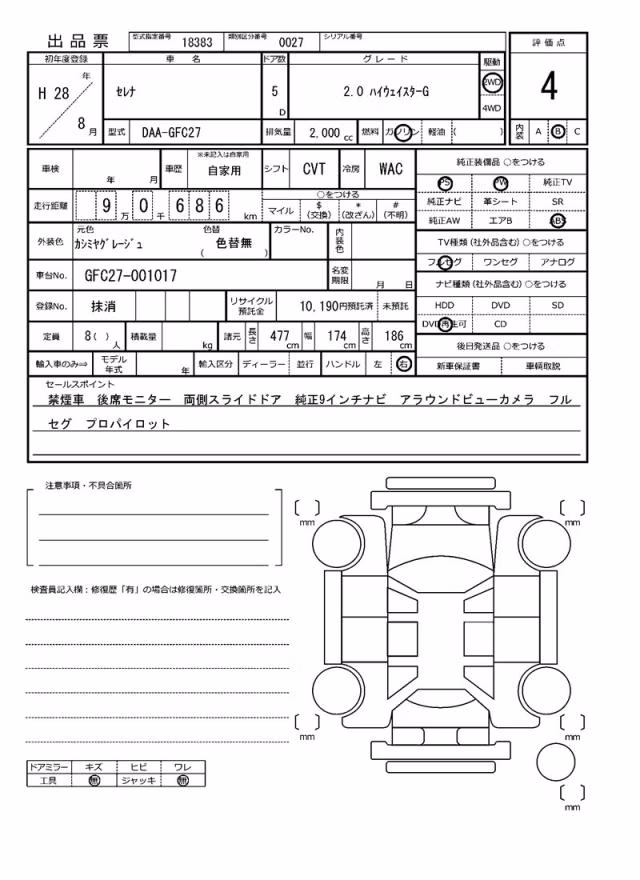 出品票 型式指定番号 18383 類別区分番号 0027 シリアル番号
評価点
4
内装 A B C
初年度登録 車名 ドア数 グレード 駆動
H 28 年 8 月 セレナ 5 D 2.0 ハイウェイスターG 2WD 4WD
型式 DAA-GFC27 排気量 2,000 cc 燃料 ガソリン 軽油 ( )
車検 年 月 車歴 ※未記入は自家用 自家用 シフト CVT 冷房 WAC
走行距離 9 万 0 千 6 8 6 km ○をつける
マイル $ (交換) * (改ざん) # (不明)
外装色 元色 カシミヤグレージュ 色替 色替無 ( ) カラーNo. 内装色
車台No. GFC27-001017 名変期限 月 日
登録No. 抹消 リサイクル預託金 10,190円預託済 未預託
定員 8( ) 人 積載量 kg 諸元 長さ 477 cm 幅 174 cm 高さ 186 cm
輸入車のみ⇒ モデル年式 年 輸入区分 ディーラー 並行 ハンドル 左 右
純正装備品 ○をつける
PS PW 純正TV
純正ナビ 革シート SR
純正AW エアB ABS
TV種類 (社外品含む) ○をつける
フルセグ ワンセグ アナログ
ナビ種類 (社外品含む) ○をつける
HDD DVD SD
DVD再生可 CD
後日発送品 ○をつける
新車保証書 車輌取説
セールスポイント
禁煙車 後席モニター 両側スライドドア 純正9インチナビ アラウンドビューカメラ フル
セグ プロパイロット
注意事項・不具合箇所
検査員記入欄：修復歴「有」の場合は修復箇所・交換箇所を記入
ドアミラー キズ ヒビ ワレ
工具 無 ジャッキ 無
mm
mm
mm
mm
mm